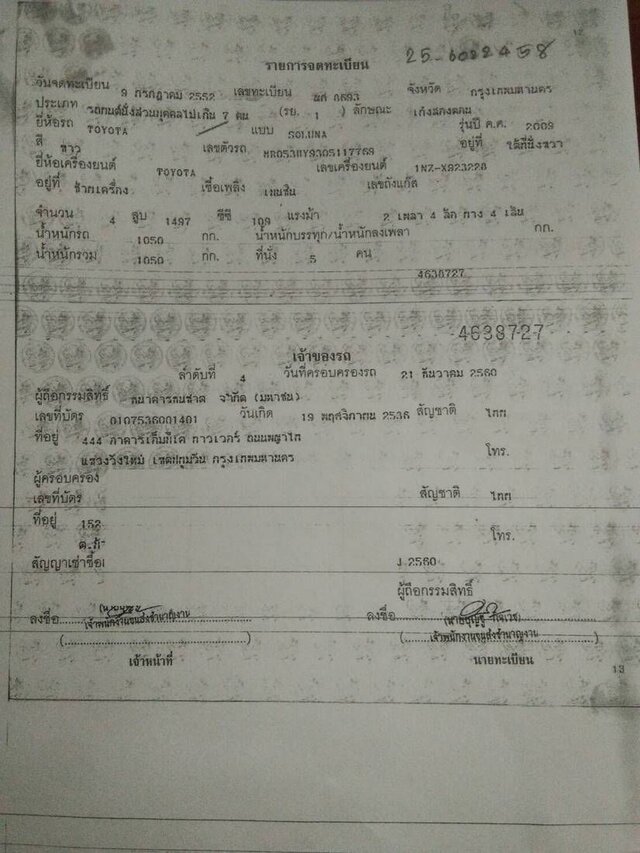 25-6022458
รายการจดทะเบียน
วันจดทะเบียน 9 กรกฎาคม 2552 เลขทะเบียน จังหวัด กรุงเทพมหานคร
ประเภท รถยนต์นั่งส่วนบุคคลไม่เกิน 7 คน (รย. 1 ) ลักษณะ เก๋งสองตอน
ยี่ห้อรถ TOYOTA แบบ SOLUNA รุ่นปี ค.ศ. 2009
สี ขาว เลขตัวรถ อยู่ที่ ใต้ที่นั่งขวา
ยี่ห้อเครื่องยนต์ TOYOTA เลขเครื่องยนต์
อยู่ที่ ซ้ายเครื่อง เชื้อเพลิง เบนซิน เลขถังแก๊ส
จำนวน 4 สูบ 1497 ซีซี 109 แรงม้า 2 เพลา 4 ล้อ ยาง 4 เส้น
น้ำหนักรถ 1050 กก. น้ำหนักบรรทุก/น้ำหนักลงเพลา กก.
น้ำหนักรวม 1050 กก. ที่นั่ง 5 คน
4638727
4638727
เจ้าของรถ
ลำดับที่ 4 วันที่ครอบครองรถ 21 ธันวาคม 2560
ผู้ถือกรรมสิทธิ์ ธนาคารธนชาต จำกัด (มหาชน)
เลขที่บัตร 0107536001401 วันเกิด 19 พฤศจิกายน 2536 สัญชาติ ไทย
ที่อยู่ 444 อาคารเอ็มบีเค ทาวเวอร์ ถนนพญาไท
แขวงวังใหม่ เขตปทุมวัน กรุงเทพมหานคร โทร.
ผู้ครอบครอง
เลขที่บัตร สัญชาติ ไทย
ที่อยู่ 152 โทร.
สัญญาเช่าซื้อ 2560
ผู้ถือกรรมสิทธิ์
ลงชื่อ ลงชื่อ
เจ้าพนักงานขนส่งชำนาญงาน เจ้าพนักงานขนส่งชำนาญงาน
เจ้าหน้าที่ นายทะเบียน
13